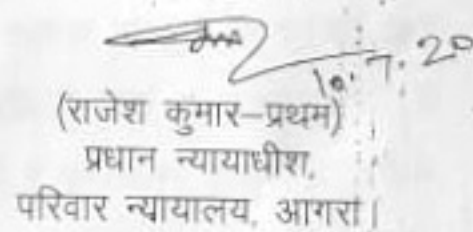 10.7.20
(राजेश कुमार–प्रथम)
प्रधान न्यायाधीश,
परिवार न्यायालय, आगरा।